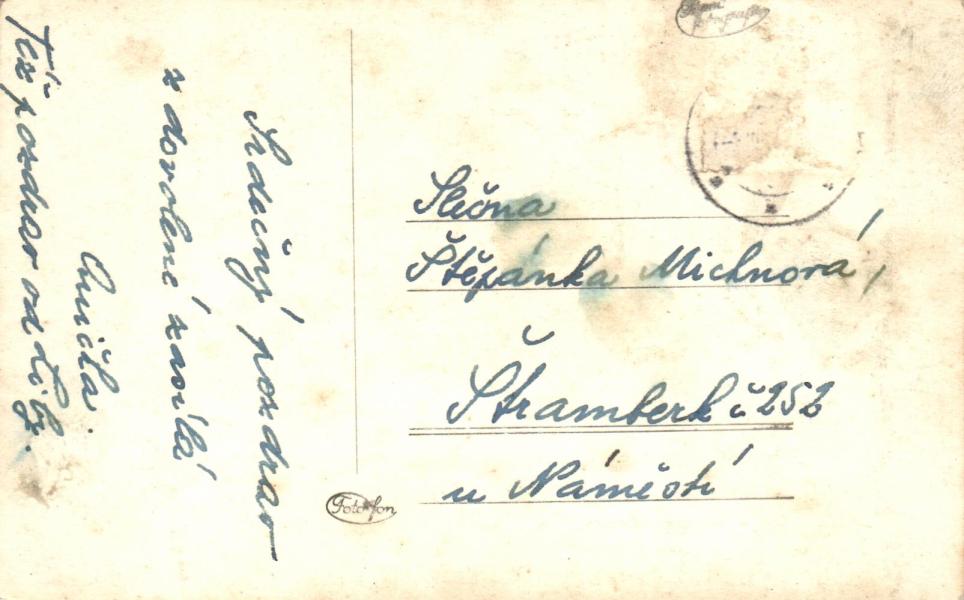 Srdečný pozdrav
z dovolené zasílá
Anička.
Též pozdrav od
Slečna
Štěpánka Michnová,
Štramberk č 252
u Náměstí
Fotofon